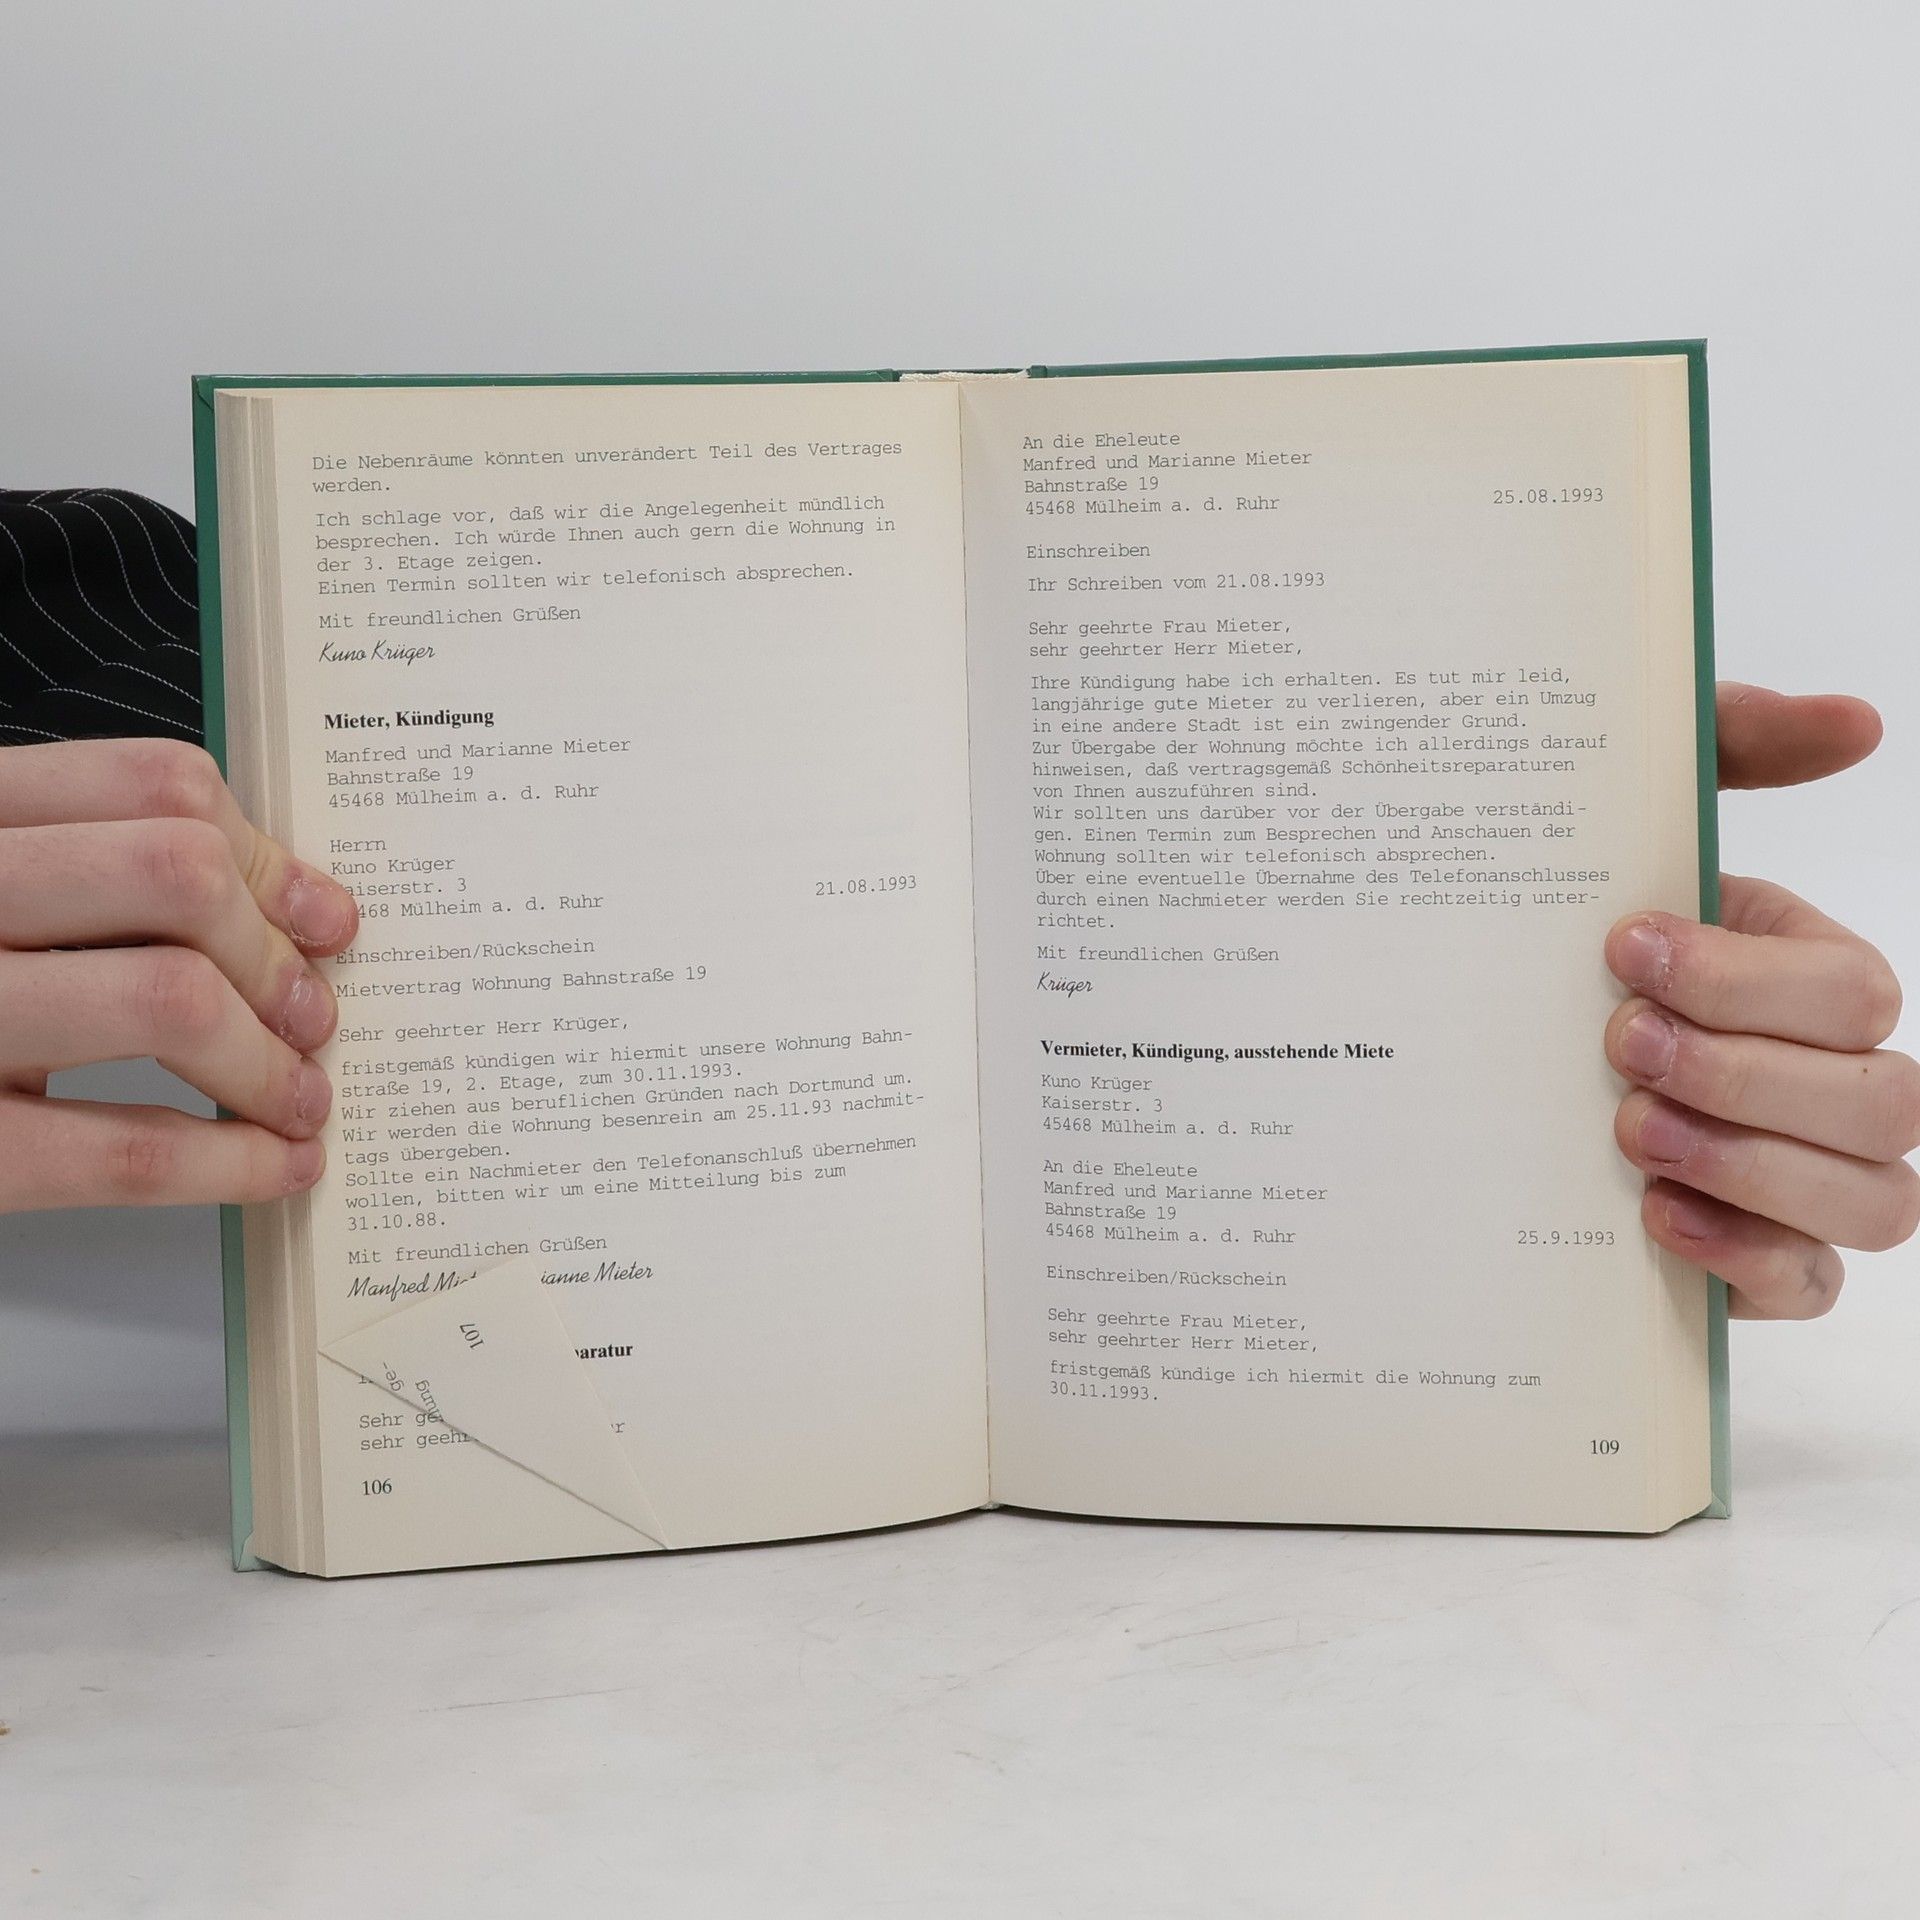 Die Nebenräume könnten unverändert Teil des Vertrages
werden.
Ich schlage vor, daß wir die Angelegenheit mündlich
besprechen. Ich würde Ihnen auch gern die Wohnung in
der 3. Etage zeigen.
Einen Termin sollten wir telefonisch absprechen.
Mit freundlichen Grüßen
Kuno Krüger
Mieter, Kündigung
Manfred und Marianne Mieter
Bahnstraße 19
45468 Mülheim a. d. Ruhr
Herrn
Kuno Krüger
aiserstr. 3
468 Mülheim a. d. Ruhr 21.08.1993
Einschreiben/Rückschein
Mietvertrag Wohnung Bahnstraße 19
Sehr geehrter Herr Krüger,
fristgemäß kündigen wir hiermit unsere Wohnung Bahn-
straße 19, 2. Etage, zum 30.11.1993.
Wir ziehen aus beruflichen Gründen nach Dortmund um.
Wir werden die Wohnung besenrein am 25.11.93 nachmit-
tags übergeben.
Sollte ein Nachmieter den Telefonanschluß übernehmen
wollen, bitten wir um eine Mitteilung bis zum
31.10.88.
Mit freundlichen Grüßen
Manfred ianne Mieter
107
aratur
ge-
Sehr ge
sehr geehr
106
An die Eheleute
Manfred und Marianne Mieter
Bahnstraße 19
45468 Mülheim a. d. Ruhr 25.08.1993
Einschreiben
Ihr Schreiben vom 21.08.1993
Sehr geehrte Frau Mieter,
sehr geehrter Herr Mieter,
Ihre Kündigung habe ich erhalten. Es tut mir leid,
langjährige gute Mieter zu verlieren, aber ein Umzug
in eine andere Stadt ist ein zwingender Grund.
Zur Übergabe der Wohnung möchte ich allerdings darauf
hinweisen, daß vertragsgemäß Schönheitsreparaturen
von Ihnen auszuführen sind.
Wir sollten uns darüber vor der Übergabe verständi-
gen. Einen Termin zum Besprechen und Anschauen der
Wohnung sollten wir telefonisch absprechen.
Über eine eventuelle Übernahme des Telefonanschlusses
durch einen Nachmieter werden Sie rechtzeitig unter-
richtet.
Mit freundlichen Grüßen
Krüger
Vermieter, Kündigung, ausstehende Miete
Kuno Krüger
Kaiserstr. 3
45468 Mülheim a. d. Ruhr
An die Eheleute
Manfred und Marianne Mieter
Bahnstraße 19
45468 Mülheim a. d. Ruhr 25.9.1993
Einschreiben/Rückschein
Sehr geehrte Frau Mieter,
sehr geehrter Herr Mieter,
fristgemäß kündige ich hiermit die Wohnung zum
30.11.1993.
109